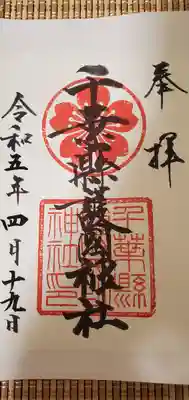 奉拝
千葉縣護國神社
令和五年四月十九日
千葉縣
神社印